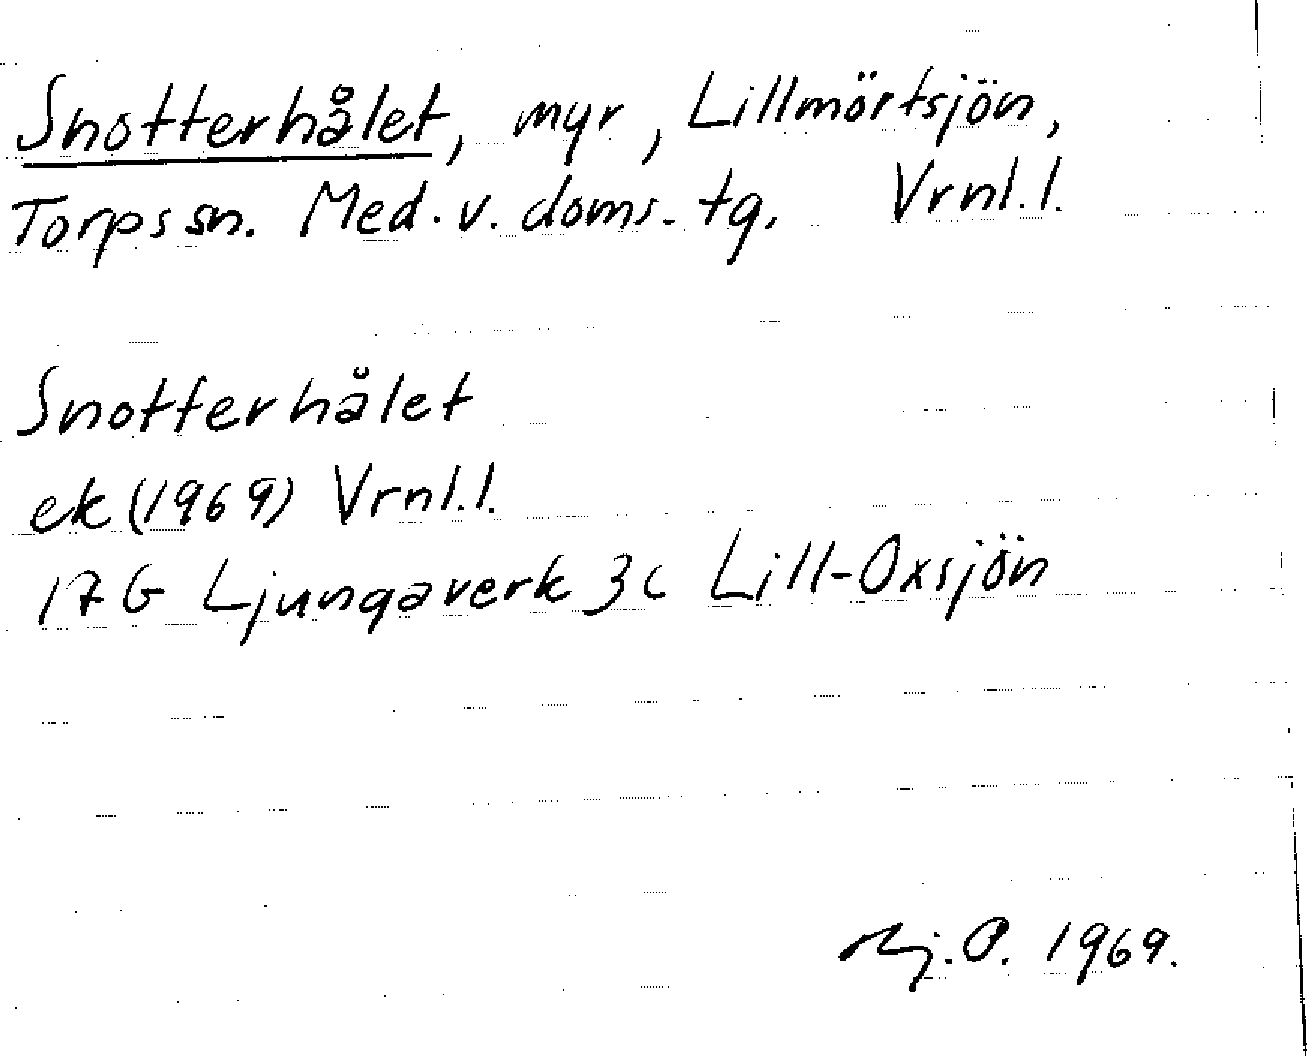 Snotterhålet, myr, Lillmörtsjön,
Torps sn. Med. v. doms. tg. Vrnl. l.
Snotterhålet
ek (1969) Vrnl. l.
17 G Ljungaverk 3 c Lill-Oxsjön
Hj. O. 1969.